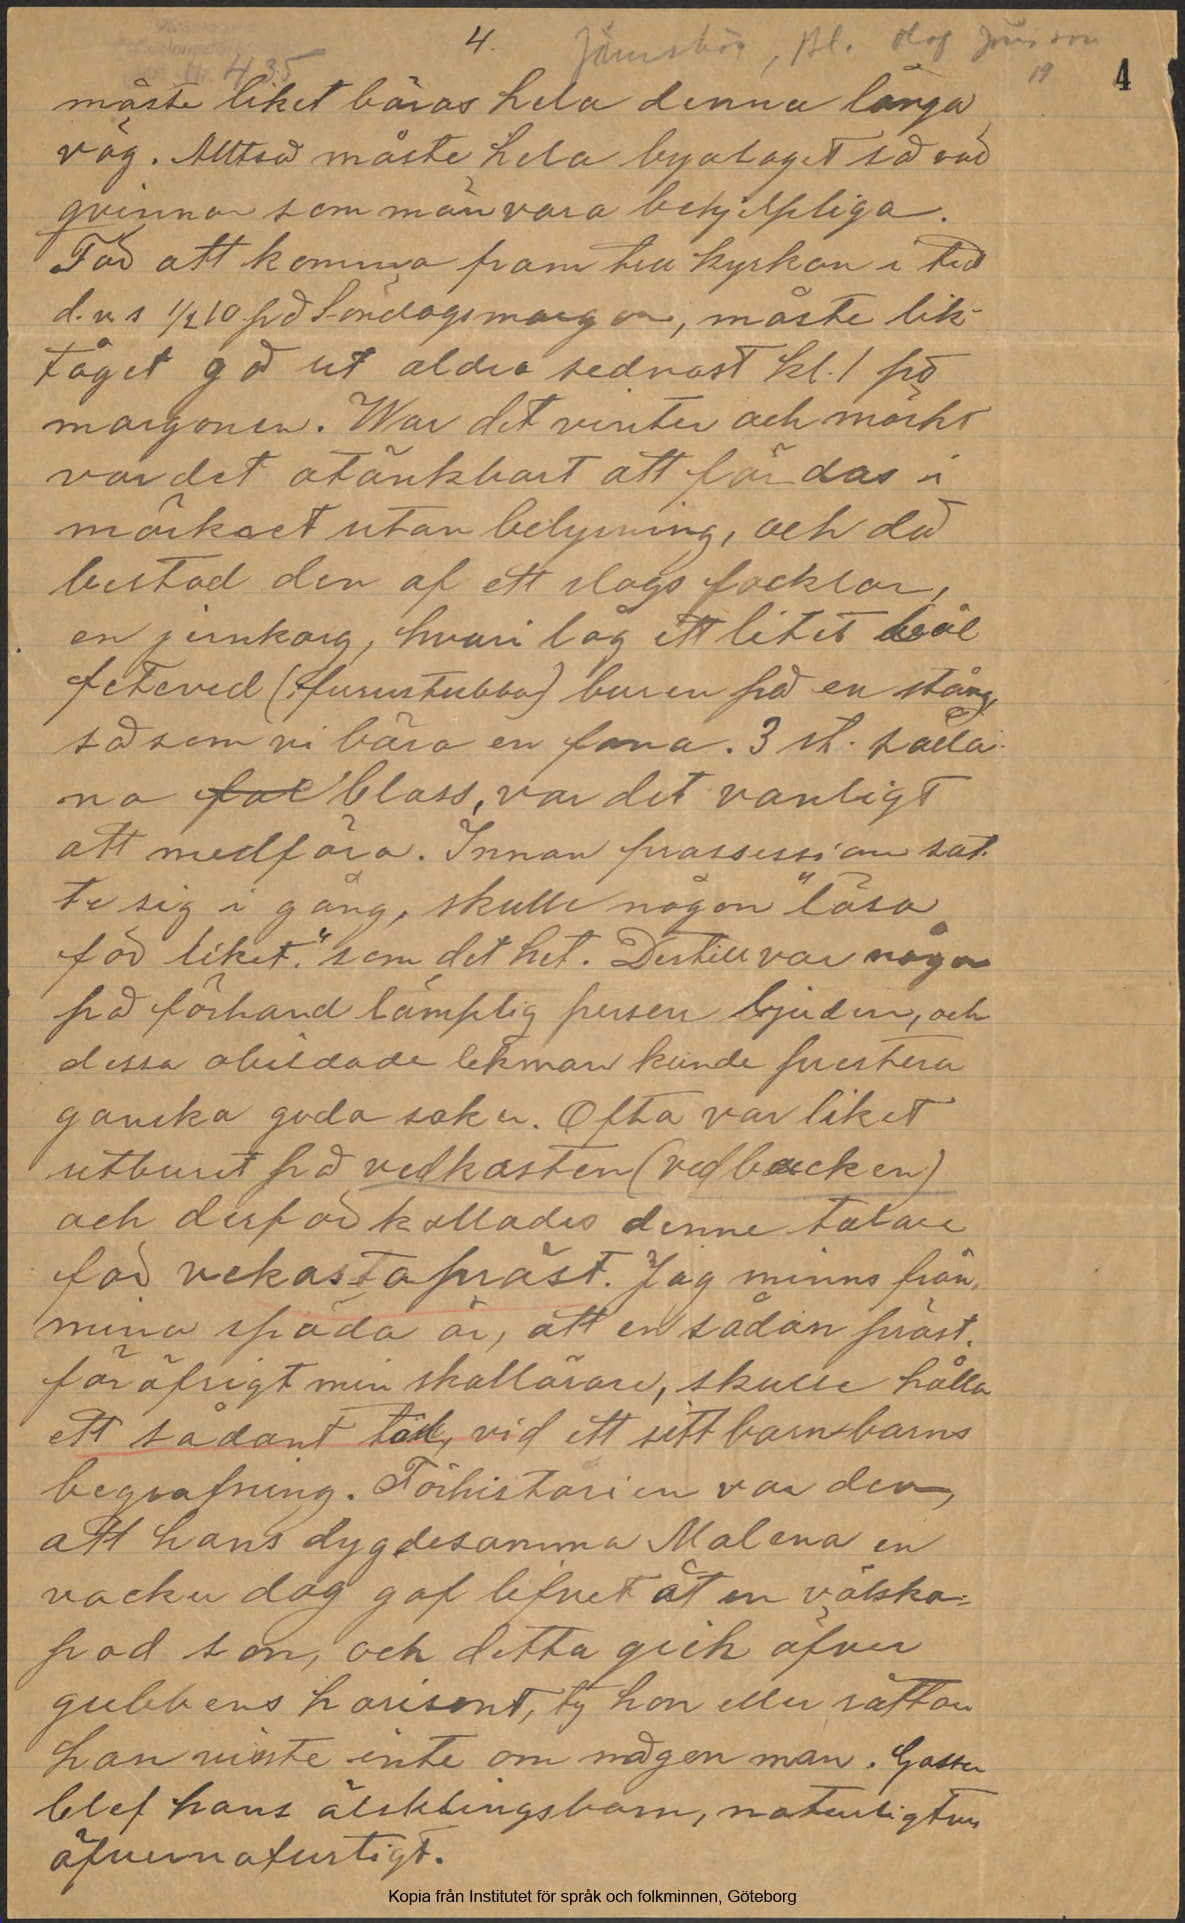 4.
Jämshög, Bl. Olof Jönsson
Nr. 435
19
4
måste liket bäras hela denna långa
väg. Alltså måste hela byalaget så väl
qvinnor som män vara behjelpliga.
För att komma fram till kyrkan i tid
d.v.s 1/2 10 på Söndagsmorgon, måste lik-
tåget gå ut aldra sednast kl. 1 på
morgonen. War det vinter och mörkt
var det otänkbart att färdas i
mörkret utan belysning, och då
bestod den af ett slags facklor,
en jernkorg, hvari låg ett litet bål
feteved (furustubbar) buren på en stång,
så som vi bära en fana. 3 st. såda-
na bloss, var det vanligt
att medföra. Innan prossession sat-
te sig i gång, skulle någon "läsa
för liket." som det het. Dertill var någon
på förhand lämplig person bjuden, och
dessa obildade lekmän kunde prestera
ganska goda saker. Ofta var liket
utburet på vedkasten (vedbacken)
och derför kallades denne talare
för vekastapräst. Jag minns från
mina späda år, att en sådan präst.
för öfrigt min skollärare, skulle hålla
ett sådant tal, vid ett sitt barnbarns
begrafning. Förhistorien var den,
att hans dygdesamma Malena en
vacker dag gaf lifvet åt en välska-
pad son, och detta gick öfver
gubbens horisont, ty hon eller rättare
han visste inte om någon man. Gossen
blef hans älsklingsbarn, naturligtvis
öfvernaturligt.
Kopia från Institutet för språk och folkminnen, Göteborg